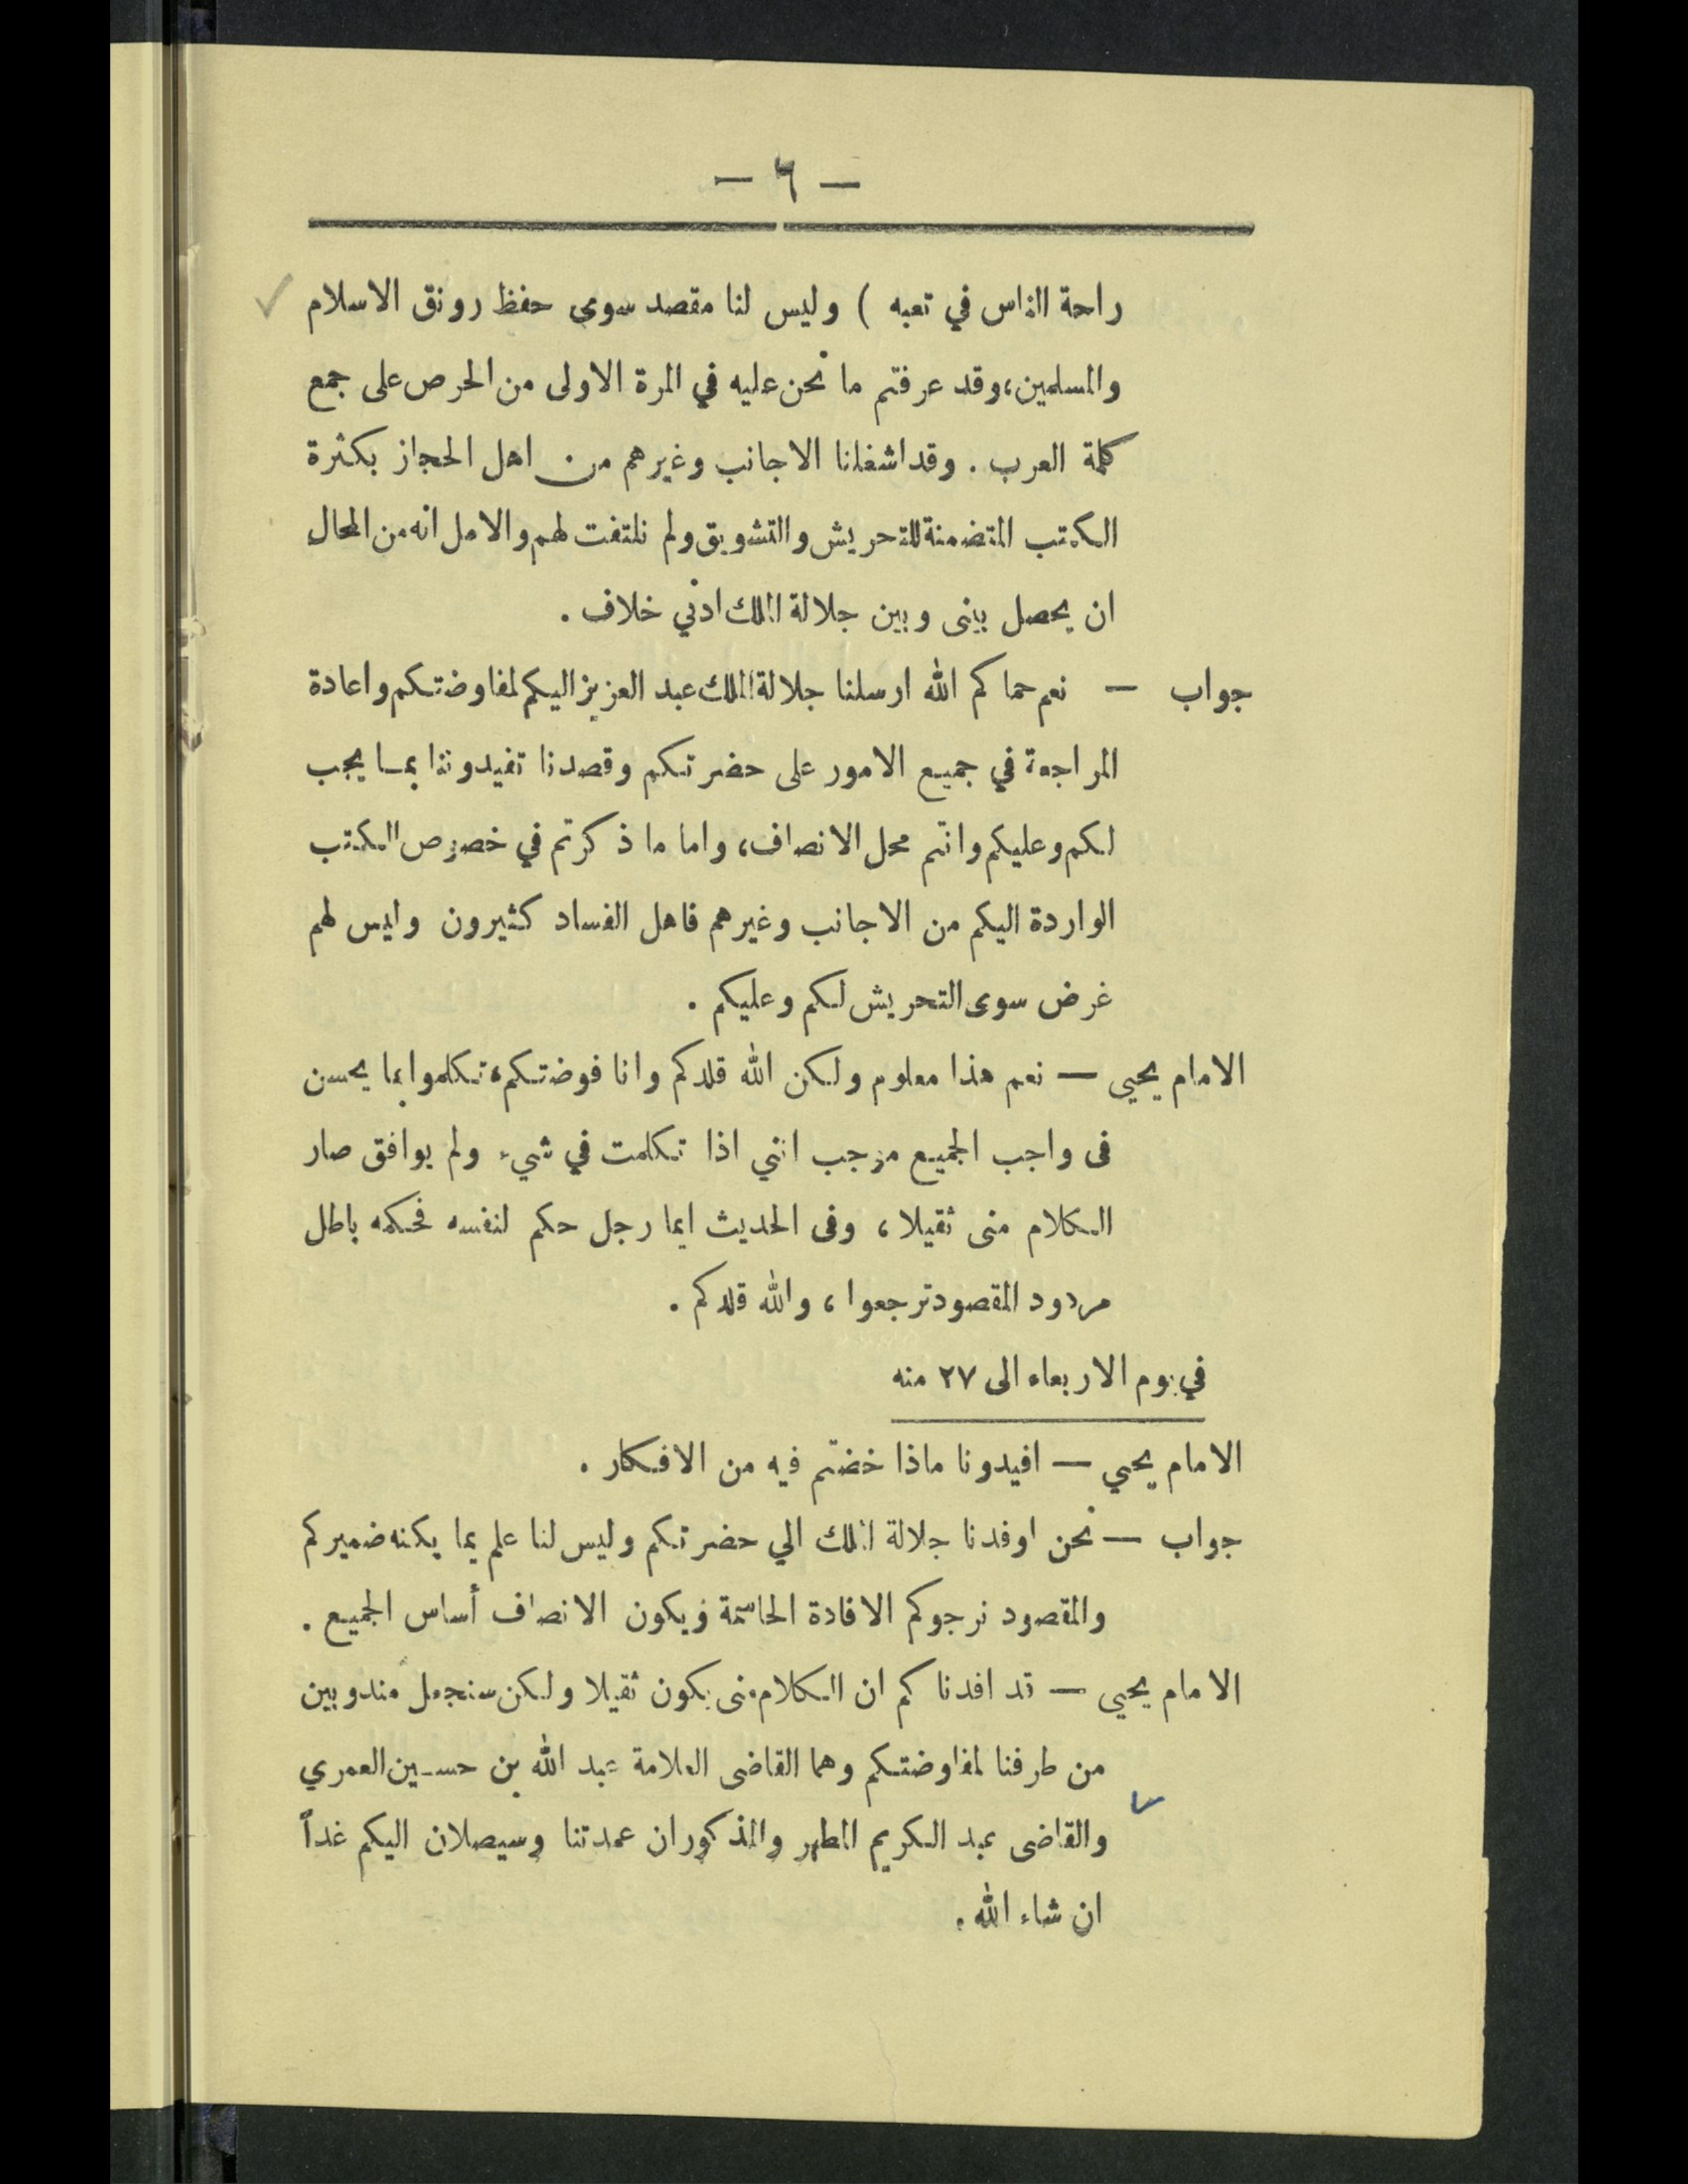 — ٦ —
راحة الناس في تعبه ) وليس لنا مقصد سوى حفظ رونق الاسلام
والمسلمين، وقد عرفتم ما نحن عليه في المرة الاولى من الحرص على جمع
كلمة العرب . وقد اشغلنا الاجانب وغيرهم من اهل الحجاز بكثرة
الكتب المتضمنة للتحريش والتشويق ولم نلتفت لهم والامل انه من المحال
ان يحصل بينى وبين جلالة الملك ادني خلاف .
جواب — نعم حماكم الله ارسلنا جلالة الملك عبد العزيز اليكم لمفاوضتكم واعادة
المراجعة في جميع الامور على حضرتكم وقصدنا تفيدوننا بما يجب
لكم وعليكم وانتم محل الانصاف، واما ما ذكرتم في خصوص الكتب
الواردة اليكم من الاجانب وغيرهم فاهل الفساد كثيرون وليس لهم
غرض سوى التحريش لكم وعليكم .
الامام يحيى — نعم هذا معلوم ولكن الله قلدكم وانا فوضتكم، تكلموا بما يحسن
فى واجب الجميع موجب انني اذا تكلمت في شيء ولم يوافق صار
الكلام منى ثقيلا ، وفى الحديث ايما رجل حكم لنفسه فحكمه باطل
مردود المقصود ترجعوا ، والله قلدكم .
في يوم الاربعاء الى ٢٧ منه
الامام يحيي — افيدونا ماذا خضتم فيه من الافكار .
جواب — نحن اوفدنا جلالة الملك الي حضرتكم وليس لنا علم بما يكنه ضميركم
والمقصود نرجوكم الافادة الحاسمة ويكون الانصاف أساس الجميع .
الامام يحيى — قد افدناكم ان الكلام منى يكون ثقيلا ولكن سنجعل مندوبين
من طرفنا لمفاوضتكم وهما القاضى العلامة عبد الله بن حسين العمري
والقاضى عبد الكريم المطهر والمذكوران عمدتنا وسيصلان اليكم غداً
ان شاء الله .